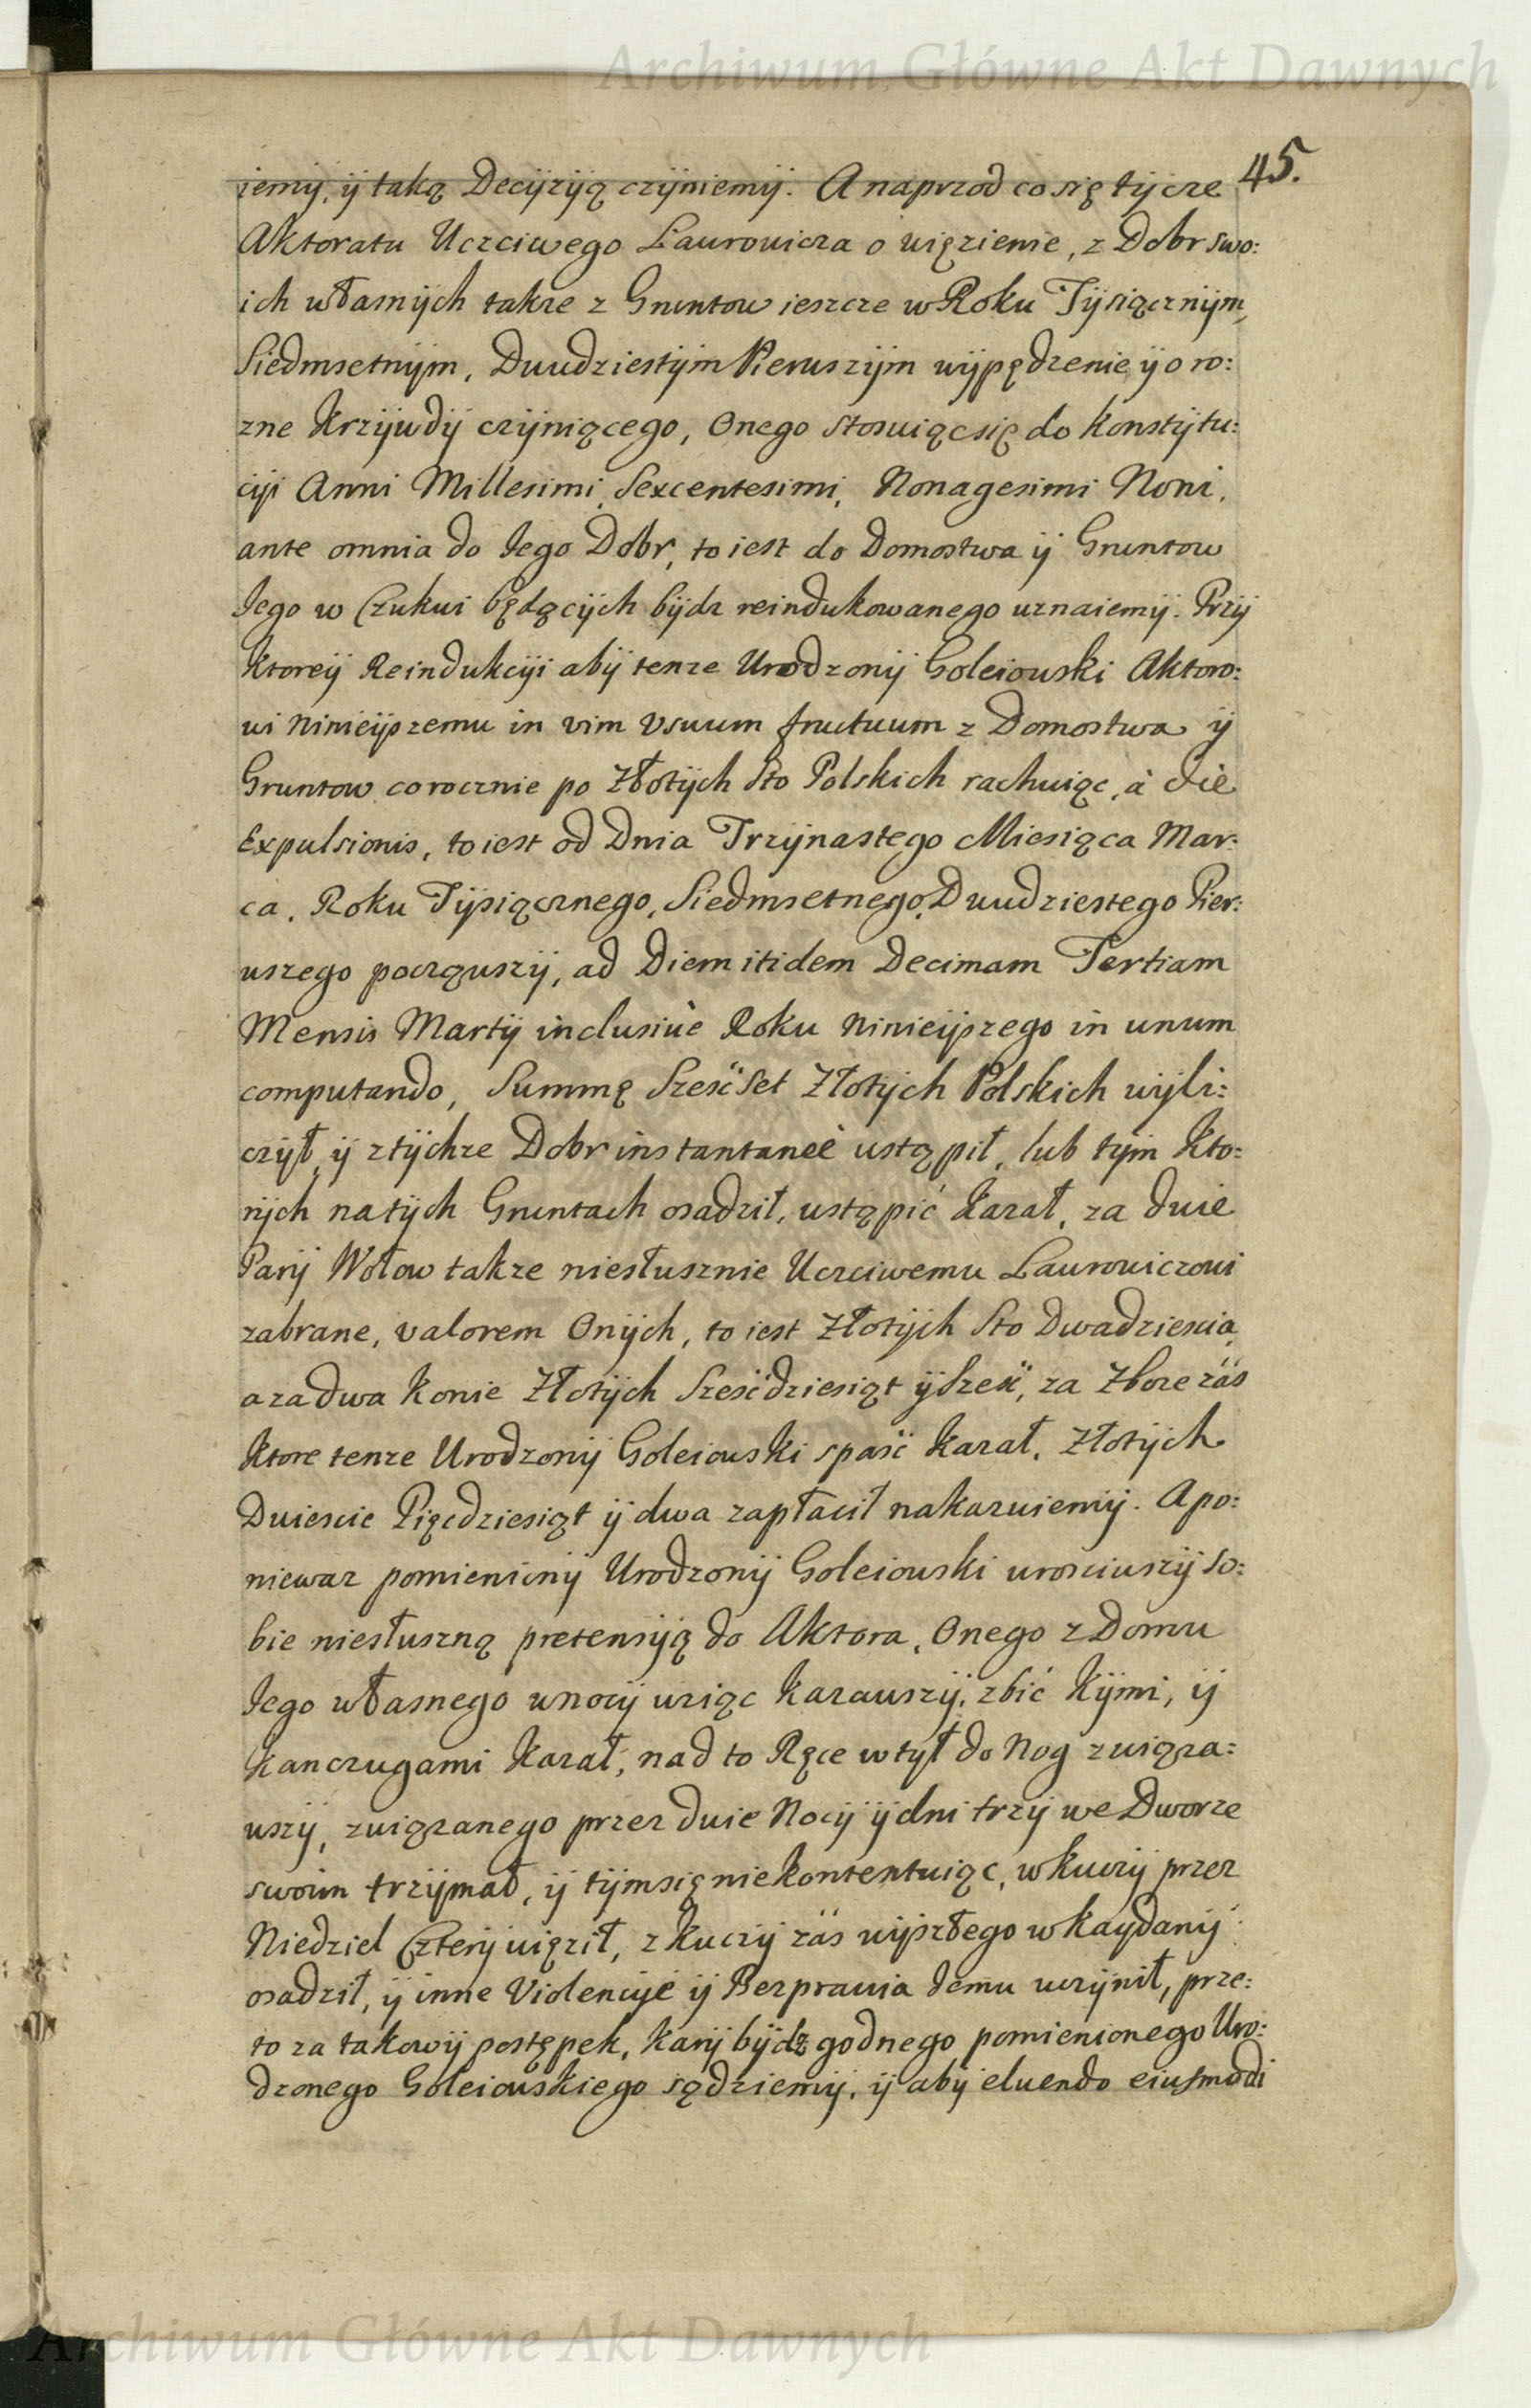 Archiwum Główne Akt Dawnych
45.
iemÿ, ÿ taką Decÿzÿą czÿniemÿ. A naprzod co się tÿcze
Aktoratu Uczciwego Laurowicza o więzienie, z Dobr swo:
ich własnÿch takze z Gruntow ieszcze w Roku Tÿsiącznÿm,
Siedmsetnÿm, Dwudziestÿm Pierwszÿm wÿpędzenie, ÿ o ro:
zne Krzÿwdÿ czÿniącego, Onego stosuiąc się do Konstÿtu:
cÿi Anni Millesimi, Sexcentesimi, Nonagesimi Noni,
ante omnia do Iego Dobr, to iest do Domostwa ÿ Gruntow
Iego w Czukwi będącÿch bÿdz reindukowanego uznaiemÿ. Przÿ
Ktoreÿ Reindukcÿi abÿ tenze Urodzonÿ Goleiowski Aktoro:
wi Ninieÿszemu in vim Vsuum fructuum z Domostwa ÿ
Gruntow corocznie po Złotÿch Sto Polskich rachuiąc, à die
Expulsionis, to iest od Dnia Trzÿnastego Miesiąca Mar:
ca, Roku Tÿsiącznego, Siedmsetnego, Dwudziestego Pier:
wszego począwszÿ, ad Diem itidem Decimam Tertiam
Mensis Martÿ inclusiuè Roku Ninieÿszego in unum
computando, Summę Sześćset Złotÿch Polskich wÿli:
czÿł, ÿ z tÿchze Dobr instantaneè ustąpił, lub tÿm Kto:
rÿch na tÿch Gruntach osadził, ustąpić Kazał, za dwie
Parÿ Wołow takze niesłusznie Uczciwemu Laurowiczowi
zabrane, valorem Onÿch, to iest Złotÿch Sto Dwadziescia,
a za dwa Konie Złotÿch Sześćdziesiąt ÿ Sześć, za Zboze zás
Ktore tenze Urodzonÿ Goleiowski spaść Kazał, Złotÿch
Dwiescie Pięcdziesiąt ÿ dwa zapłacił nakazuiemÿ. A po:
niewaz pomienionÿ Urodzonÿ Goleiowski urosciwszÿ so:
bie niesłuszną pretensÿą do Aktora, Onego z Domu
Iego własnego w nocÿ wziąc Kazawszÿ, zbić Kÿmi, ÿ
Kanczugami Kazał, nad to Ręce w tÿł do Nog związa:
wszÿ, związanego przez dwie Nocÿ ÿ dni trzÿ we Dworze
swoim trzÿmał, ÿ tÿm się nie Kontentuiąc, w kuczÿ przez
Niedziel Czterÿ więził, z Kuczÿ zás wÿszłego w kaydanÿ
osadził, ÿ inne Violencÿe ÿ Bezprawia Iemu uczÿnił, prze:
to za takowÿ postępek, Karÿ bÿdz godnego pomienionego Uro:
dzonego Goleiowskiego sądziemÿ, ÿ abÿ eluendo eiusmodi
Archiwum Główne Akt Dawnych